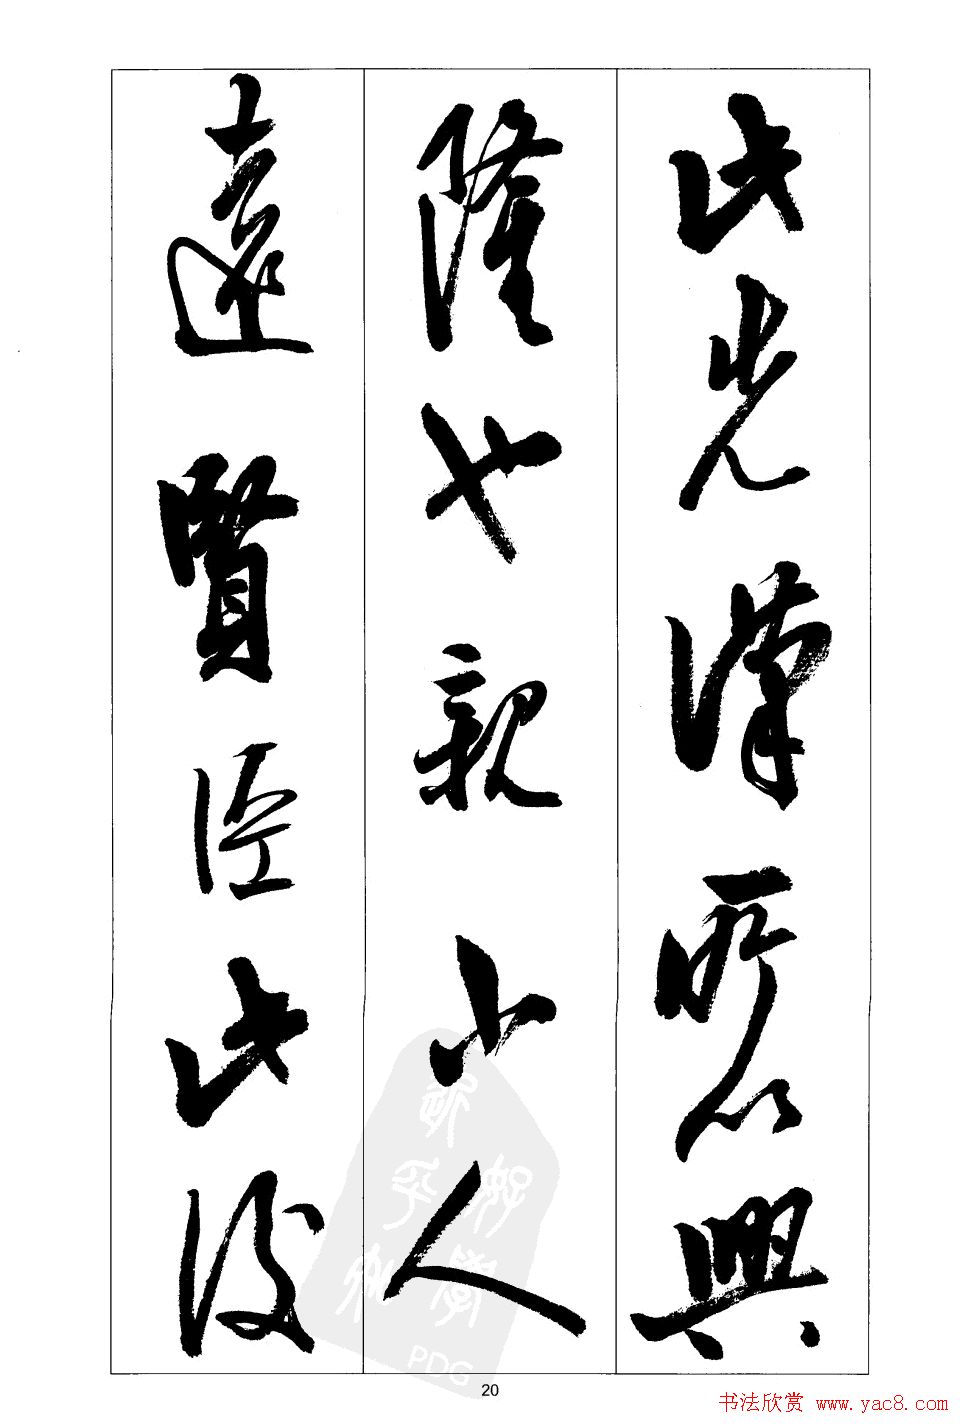 此先漢所以興
隆也親小人
遠賢臣此後
20
书法欣赏 www.yac8.com
PDG